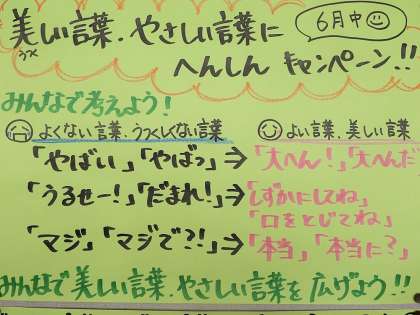 美しい言葉.やさしい言葉に
うつく
6月中
へんしん キャンペーン!!
みんなで考えよう!
よくない言葉、うつくしくない言葉
よい言葉、美しい言葉
「やばい」「やばっ」⇒「大へん!」「大へんだ
「うるせー!」「だまれ!」⇒「しずかにしてね」
「口をとじてね」
「マジ」「マジで?!」⇒「本当」「本当に?」
みんなで美しい言葉.やさしい言葉を広げよう!!